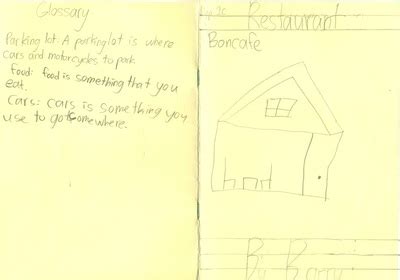 Glossary
Parking lot: A parking lot is where
cars and motorcycles to park
food: food is something that you
eat.
Cars: cars is something you
use to got somewhere.
Restaurant
Boncafe
By